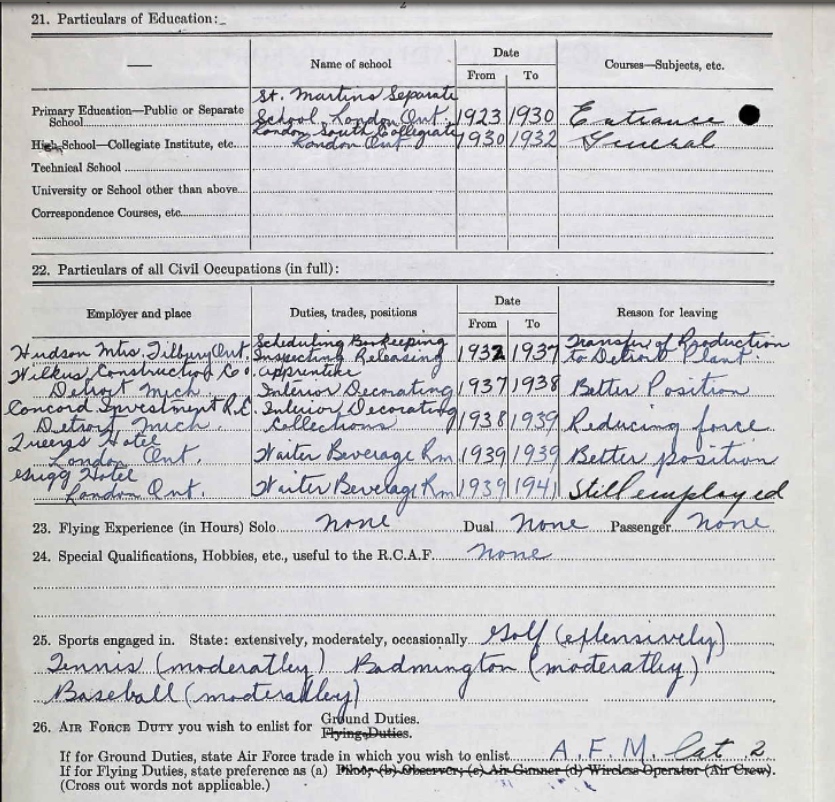 2
21. Particulars of Education:
Name of school
Date
From To
Courses—Subjects, etc.
St. Martins Separate
Primary Education—Public or Separate School School, London Ont. 1923 1930 Entrance
London South Collegiate
High School—Collegiate Institute, etc. London Ont 1930 1932 General
Technical School
University or School other than above
Correspondence Courses, etc.
22. Particulars of all Civil Occupations (in full):
Employer and place Duties, trades, positions Date Reason for leaving
From To
Scheduling Bookkeeping Transfer of Production
Hudson Mtrs, Tilbury Ont. Inspecting Releasing 1932 1937 to Detroit Plant.
Wilkus Construction Co. apprentice
Detroit Mich. Interior Decorating 1937 1938 Better Position
Concord Investment R.E. Interior Decorating
Detroit Mich. Collections 1938 1939 Reducing force
Queens Hotel
London Ont. Waiter Beverage Rm 1939 1939 Better position
Grigg Hotel
London Ont. Waiter Beverage Rm 1939 1941 Still employed
23. Flying Experience (in Hours) Solo none Dual None Passenger none
24. Special Qualifications, Hobbies, etc., useful to the R.C.A.F. none
25. Sports engaged in. State: extensively, moderately, occasionally Golf (extensively)
Tennis (moderatley) Badmington (moderatley)
Baseball (moderatley)
26. AIR FORCE DUTY you wish to enlist for Ground Duties.
Flying Duties.
If for Ground Duties, state Air Force trade in which you wish to enlist A.F.M. Cat 2
If for Flying Duties, state preference as (a) Pilot, (b) Observer, (c) Air Gunner (d) Wireless Operator (Air Crew).
(Cross out words not applicable.)